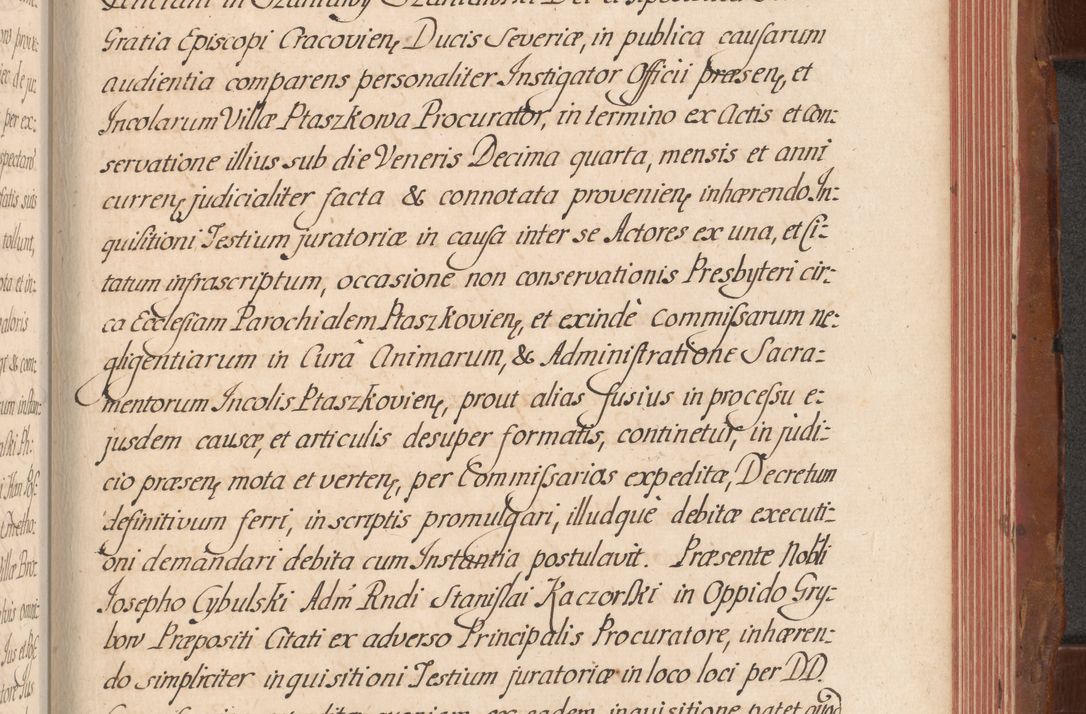 Gratia Episcopi Cracovien, Ducis Severiæ, in publica causarum
audientia comparens personaliter Instigator Officii præsen, et
Incolarum Villæ Ptaszkowa Procurator, in termino ex Actis et Con:
servatione illius sub die Veneris Decima quarta, mensis et anni
curren, judicialiter facta & connotata provenien, inhærendo In:
quisitioni Testium juratoriæ in causa inter se Actores ex una, et Ci:
tatum infrascriptum, occasione non conservationis Presbyteri cir:
ca Ecclesiam Parochialem Ptaszkovien, et exindè Commissarum ne:
gligentiarum in Curâ Animarum, & Administratione Sacra:
mentorum Incolis Ptaszkovien, prout alias fusius in processu e:
jusdem causæ, et articulis desuper formatis, continetur, in judi:
cio præsen, mota et verten, per Commissarios expeditæ, Decretum
definitivum ferri, in scriptis promulgari, illudquè debitæ executi:
oni demandari debita cum Instantia postulavit. Præsente Nobli
Iosepho Cybulski Adm Rndi Stanislai Kaczorski in Oppido Gry:
bow Præpositi Citati ex adverso Principalis Procuratore, inhæren:
do simpliciter inquisitioni Testium juratoriæ in loco loci per DD.
eadem inquisitione patet